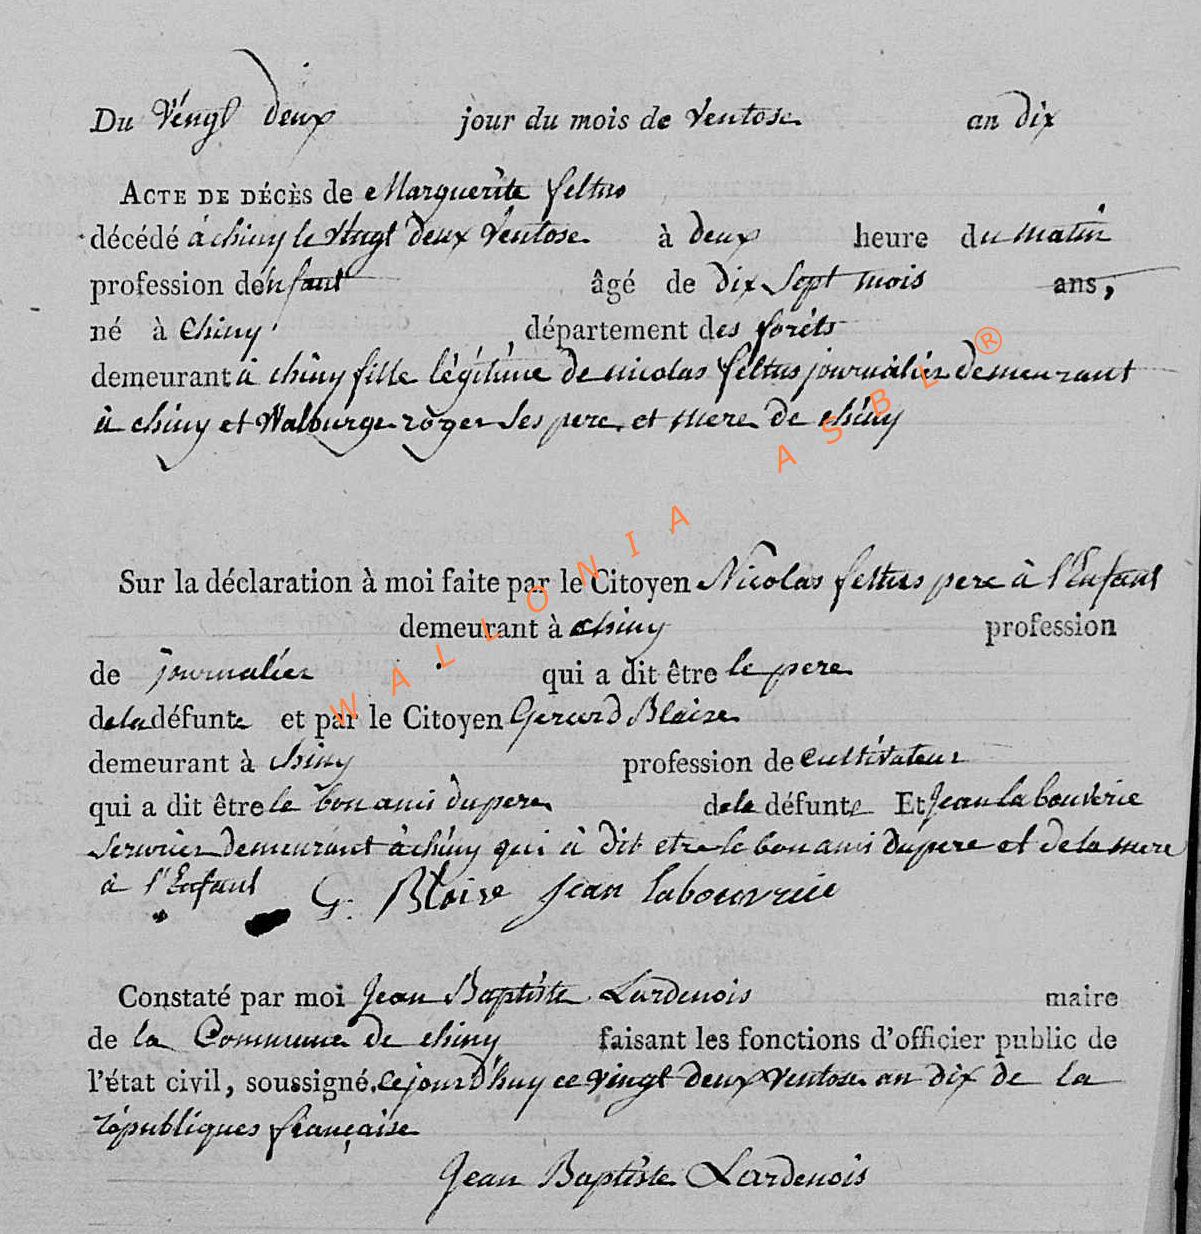 Du Vengt deux jour du mois de Ventose an dix
ACTE DE DÉCÈS de Marguerite feltus
décédé à chiny le Vingt deux Ventose à deux heure du matin
profession denfant âgé de dix Sept mois ans,
né à Chiny, département des forêts
demeurant à chiny fille légitime de nicolas feltus journalier demeurant
à chiny et Walburge roger Ses pere et mere de chiny
Sur la déclaration à moi faite par le Citoyen Nicolas feltus pere à l'Enfant
demeurant à chiny profession
de journalier qui a dit être le pere
de la défunte et par le Citoyen Gerard Blaise
demeurant à chiny profession de cultivateur
qui a dit être le bon ami du pere de la défunte Et Jean labouverie
Serurier demeurant à chiny qui à dit etre le bon ami du pere et de la mere
à l'Enfant G. Blaise Jean labouvrie
Constaté par moi Jean Baptiste Lardenois maire
de la Commune de chiny faisant les fonctions d'officier public de
l'état civil, soussigné. Ce jourd'huy ce vingt deux Ventose an dix de la
républiques française
Jean Baptiste Lardenois
WALLONIA ASBL ®